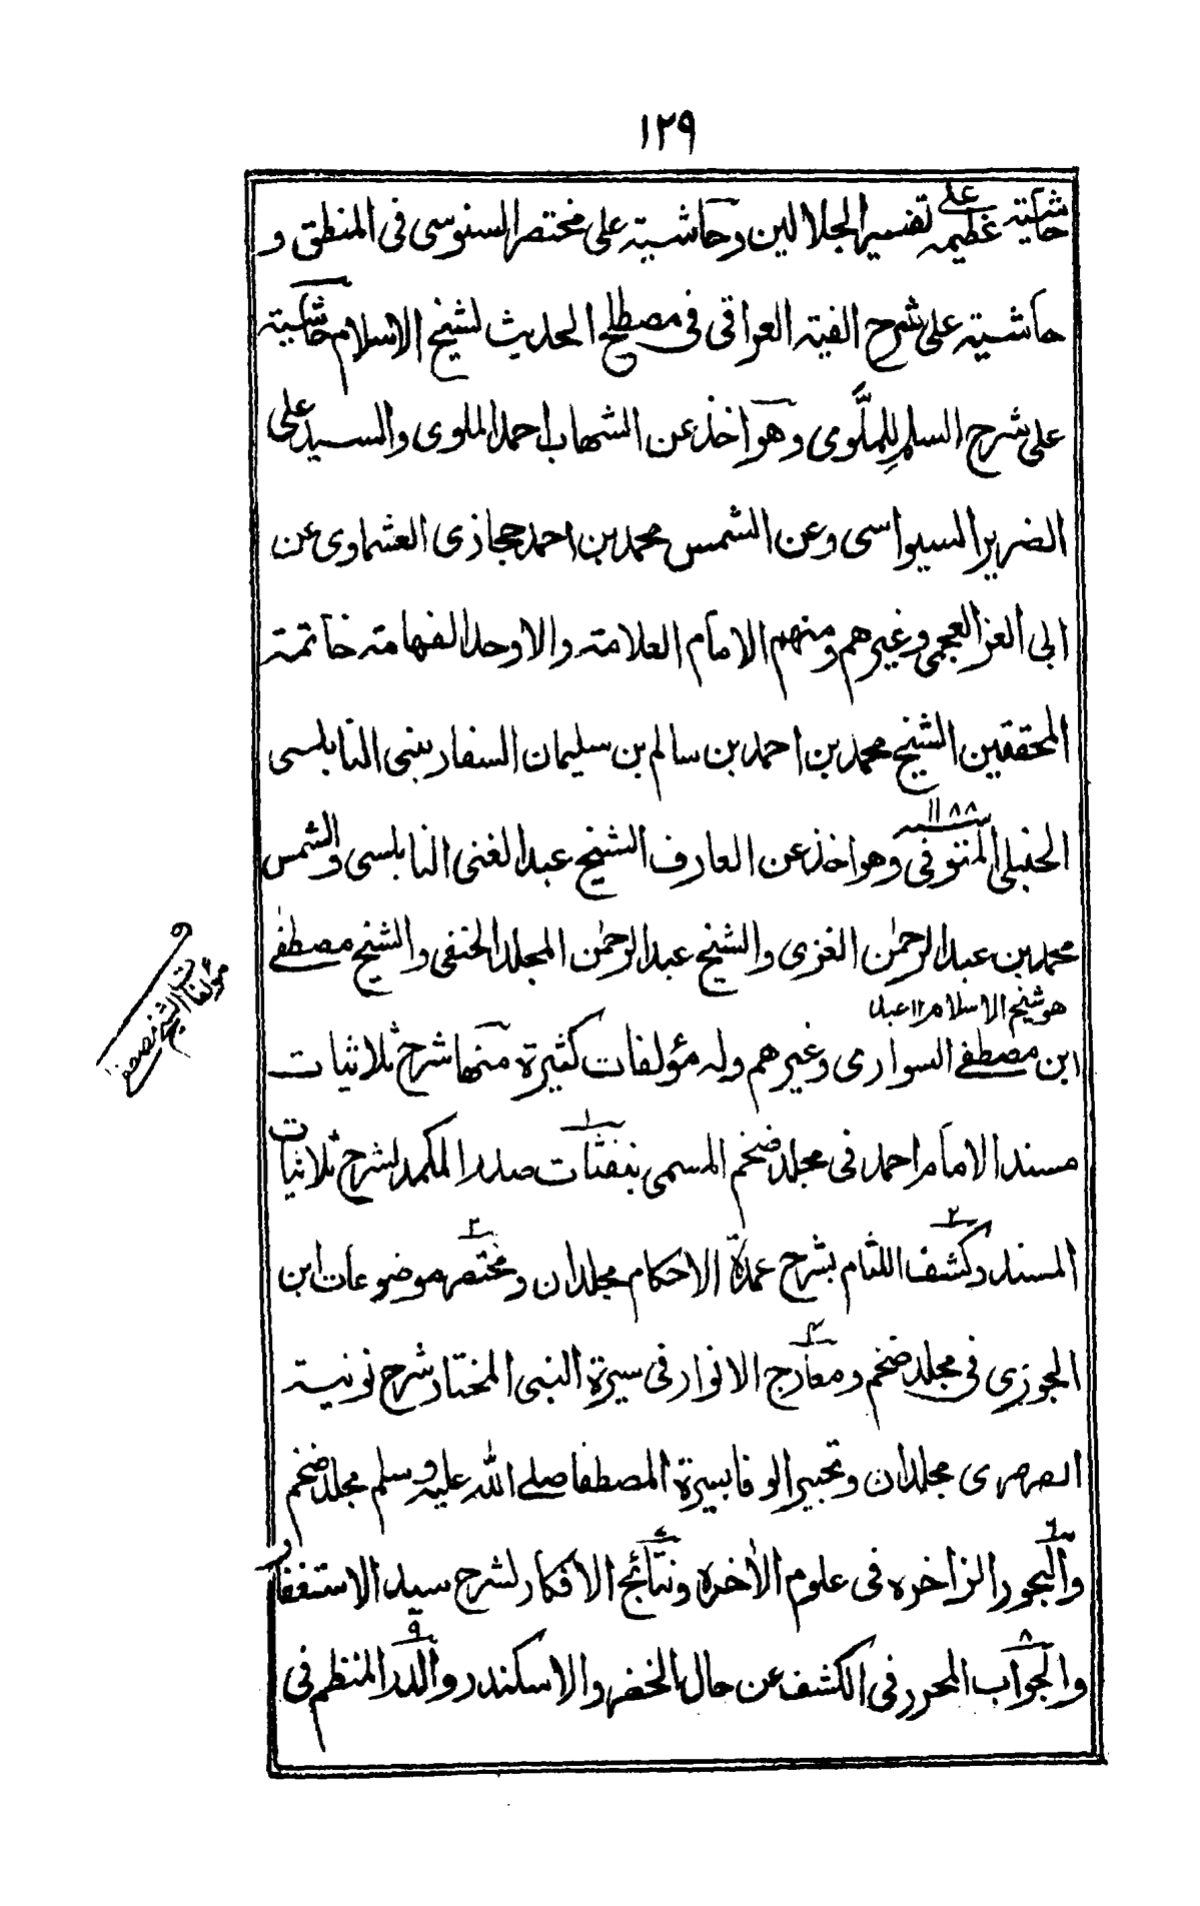 ١٢٩
حاشية عظيمه على تفسير الجلالين وحاشية على مختصر السنوسى فى المنطق و
حاشية على شرح الفية العراقى فى مصطلح الحديث لشيخ الاسلام حاشية
على شرح السلم لِلملَّوى وهو اخذ عن الشهاب احمد الملوى والسيد على
الضرير السيواسى وعن الشمس محمد بن احمد حجازى العشماوى عن
ابى العز العجمى وغيرهم ومنهم الامام العلامة والاوحد الفهامة خاتمة
المحققين الشيخ محمد بن احمد بن سالم بن سليمان السفارينى النابلسى
الحنبلى المتوفى ١١٨٨ وهو اخذ عن العارف الشيخ عبد الغنى النابلسى والشمس
محمد بن عبد الرحمٰن الغزى والشيخ عبد الرحمٰن المجلد الحنفى والشيخ مصطفٰى
هو شيخ الاسلام ١٢ عبد
ابن مصطفے السوارى وغيرهم وله مؤلفات كثيرة منها شرح ثلاثيات
مؤلفات الشيخ
مسند الامام احمد فى مجلد ضخم المسمى بنفثات ١ صدر المكمد لشرح ثلاثيات
المسند وكشف ٢ اللثام بشرح عمدة الاحكام مجلدان ومختصر ٣ موضوعات ابن
الجوزى فى مجلد ضخم ومعارج ٤ الانوار فى سيرة النبى المختار شرح نونية
الصرصرى مجلدان وتحبير الوفا بسيرة المصطفا صلے الله عليه وسلم مجلد ضخم
والبحور ٦ الزاخره فى علوم الاٰخره ونتائج ٧ الافكار لشرح سيد الاستغفار
والجواب ٨ المحرر فى الكشف عن حال الخضر والاسكندر والدر ٩ المنظم فى